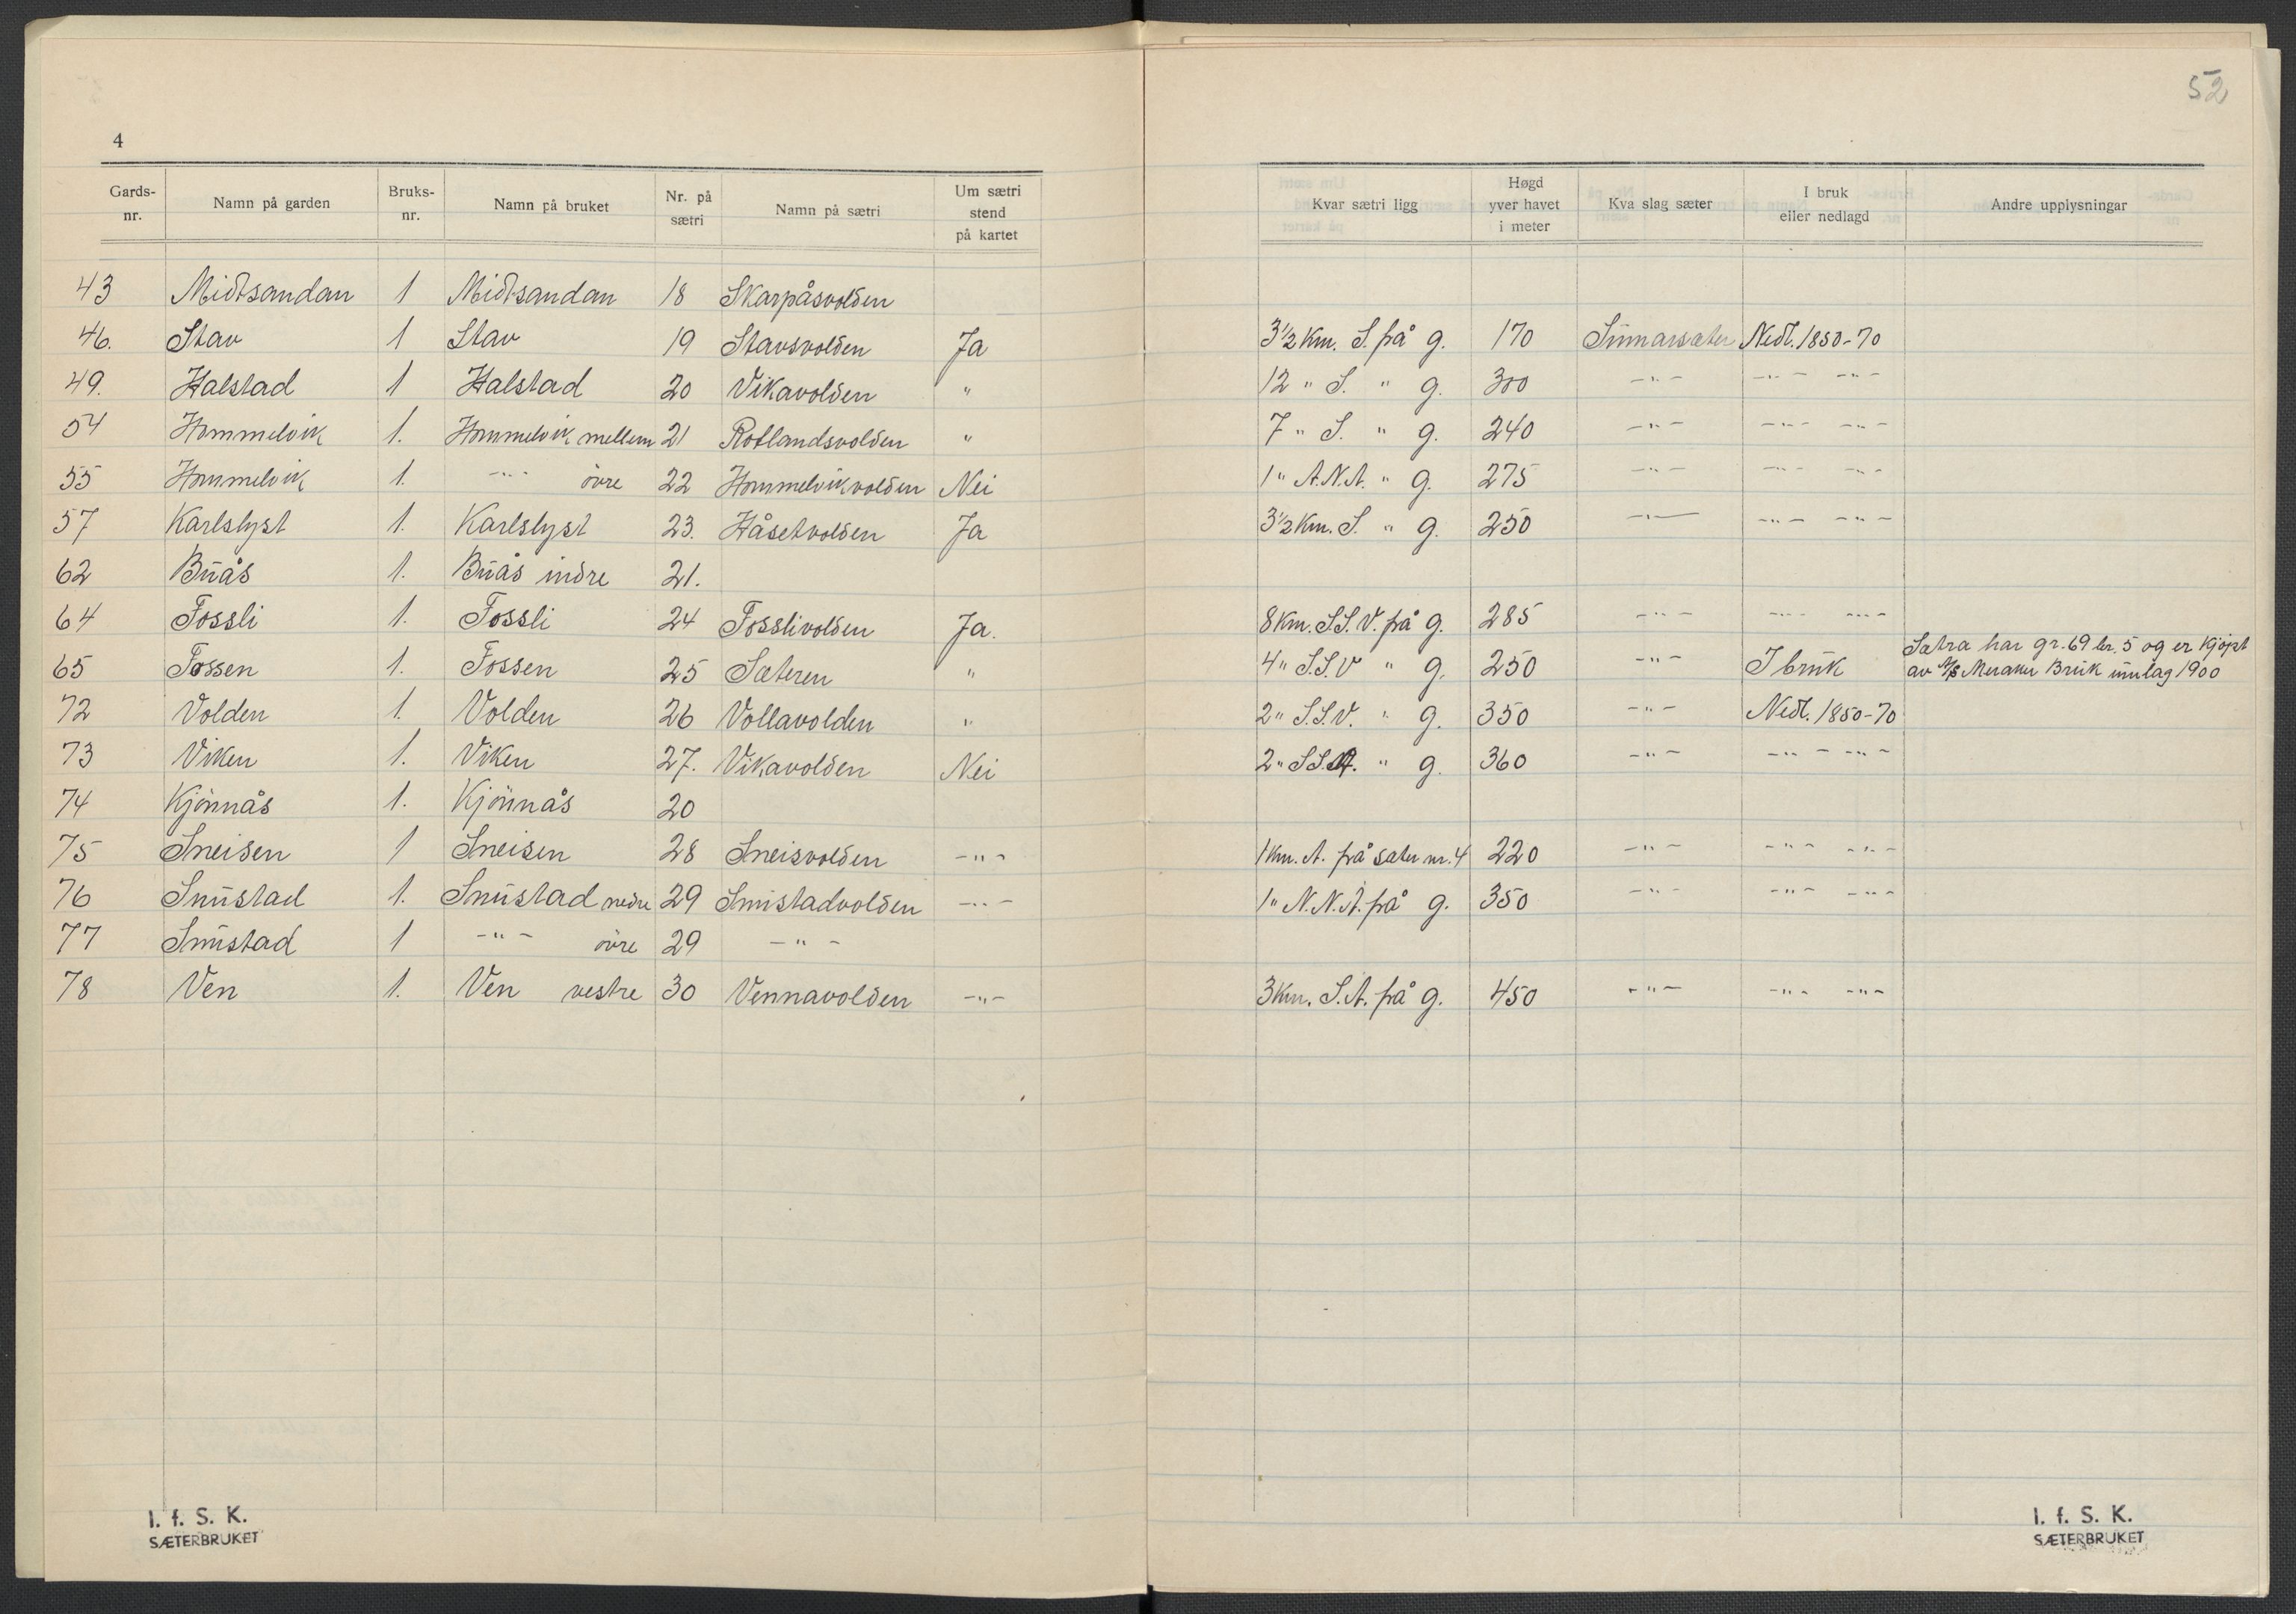 52
4
Gards-nr. Namn på garden Bruks-nr. Namn på bruket Nr. på sætri Namn på sætri Um sætri stend på kartet Kvar sætri ligg Høgd yver havet i meter Kva slag sæter I bruk eller nedlagd Andre upplysningar
43 Midtsandan 1 Midtsandan 18 Skarpåsvolden
46. Stav 1 Stav 19 Stavsvolden Ja 3½ km. S. frå g. 170 Sumarsæter Nedl. 1850-70
49. Halstad 1 Halstad 20 Vikavolden " 12 " S. " g. 300 -"- -"- -"-
54 Hommelvik 1. Hommelvik mellem 21 Rotlandsvolden " 7 " S. " g. 240 -"- -"- -"-
55 Hommelvik 1. -"- övre 22 Hommelvikvolden Nei 1 " A.N.A. " g. 275 -"- -"- -"-
57 Karlslyst 1. Karlslyst 23. Håsetvolden Ja 3½ km. S. " g. 250 -"- -"- -"-
62 Buås 1. Buås indre 21.
64 Fossli 1. Fossli 24 Fosslivolden Ja. 8 km. S.S.V. frå g. 285 -"- -"- -"-
65 Fossen 1. Fossen 25 Sæteren " 4 " S.S.V " g. 250 -"- I bruk Sætra har gr. 69 br. 5 og er kjöpt
av A/S Meraker Bruk umlag 1900
72 Volden 1. Volden 26 Vollavolden " 2 " S.S.V. " g. 350 -"- Nedl. 1850-70
73 Viken 1. Viken 27. Vikavolden Nei 2 " S.S.A. " g. 360 -"- -"- -"-
74 Kjönnås 1. Kjönnås 20
75 Sneisen 1 Sneisen 28 Sneisvolden -"- 1 km. A. frå sæter nr. 4 220 -"- -"- -"-
76 Snustad 1. Snustad nedre 29 Snustadvolden -"- 1 " N.N.A. frå g. 350 -"- -"- -"-
77 Snustad 1 -"- övre 29 -"-
78 Ven 1. Ven vestre 30 Vennavolden -"- 3 km. S.A. frå g. 450 -"- -"- -"-
I. f. S. K.
SÆTERBRUKET
I. f. S. K.
SÆTERBRUKET